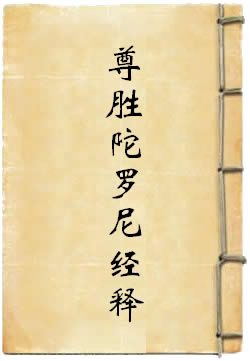 尊胜陀罗尼经释